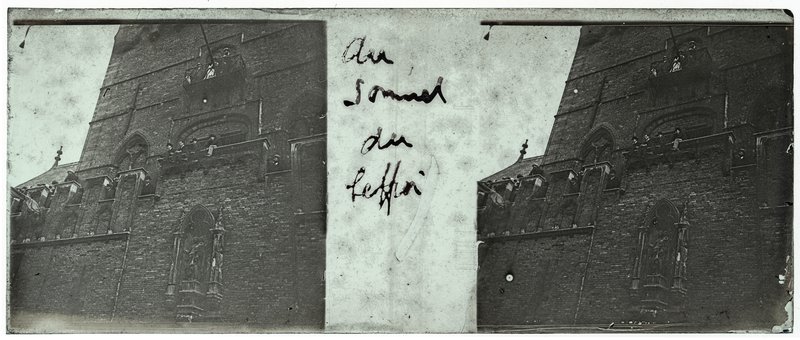 du
Sommet
du
beffroi